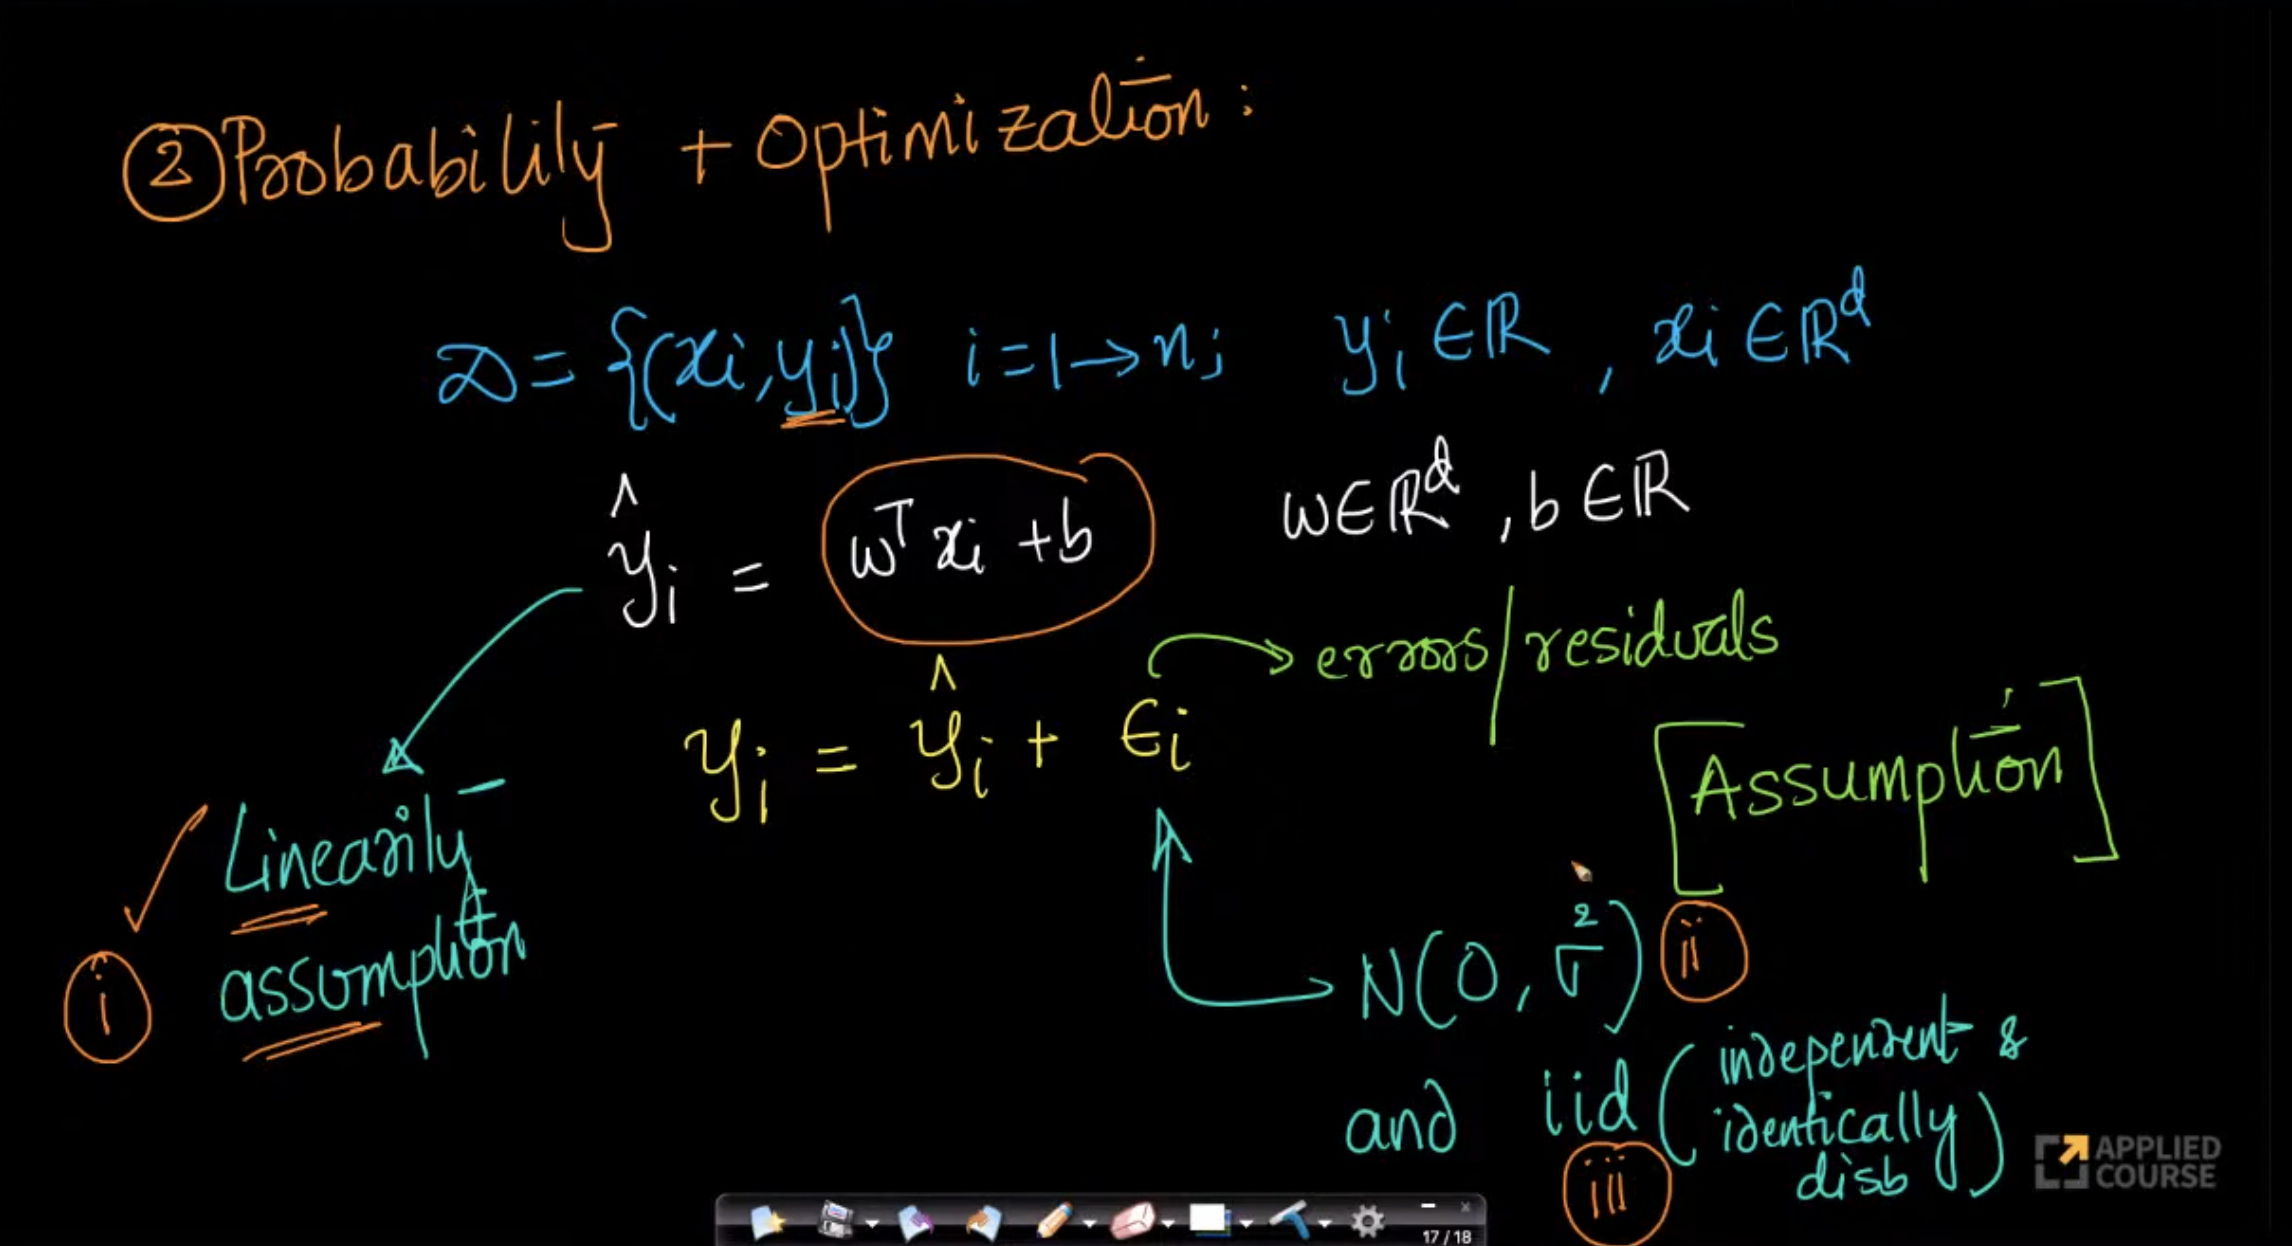 ② Probability + Optimization:
D = {(xi, yi)} i = 1 → n; yi ∈ ℝ, xi ∈ ℝ^d
ŷi = w^T xi + b w ∈ ℝ^d, b ∈ ℝ
→ errors/residuals
yi = ŷi + ∈i
[Assumption]
Linearity
assumption
i
N(0, σ²) ii
and iid (independent &
identically
disb)
iii
APPLIED
COURSE
17/18